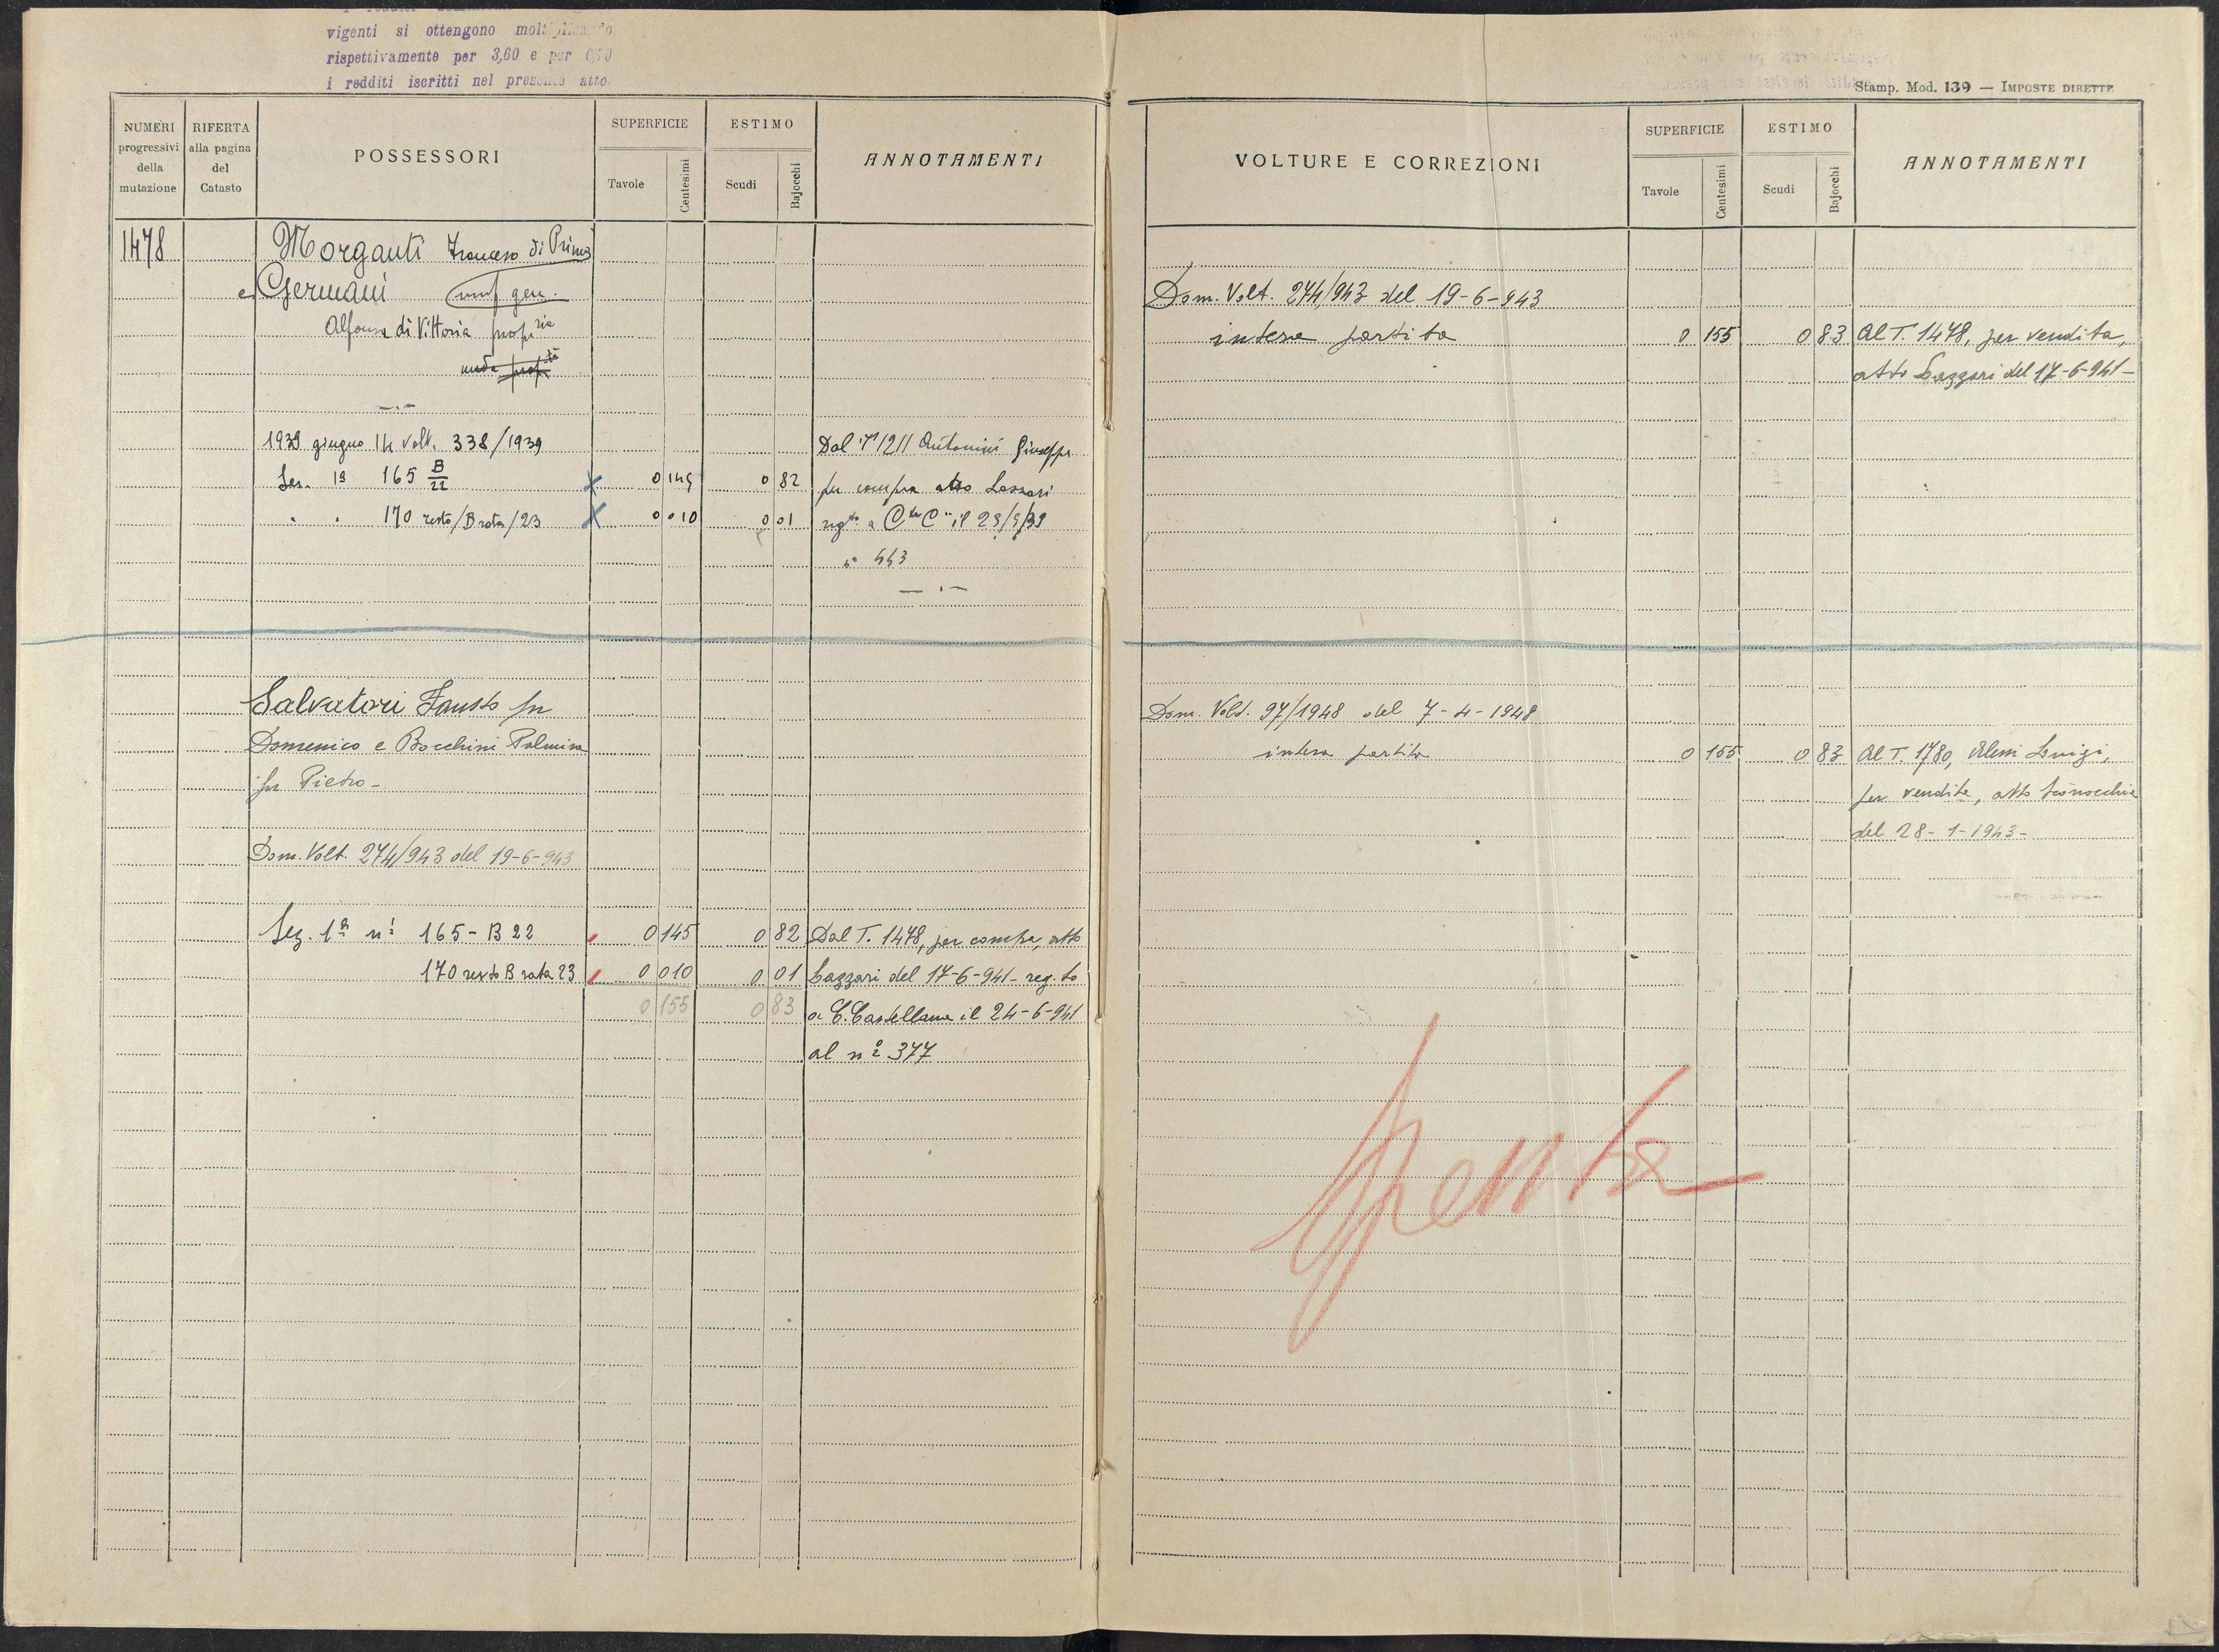 vigenti si ottengono moltiplicando
rispettivamente per 3,60 e per 0,70
i redditi iscritti nel presente atto.
Stamp. Mod. 139 — IMPOSTE DIRETTE
NUMERI progressivi della mutazione
RIFERTA alla pagina del Catasto
POSSESSORI
SUPERFICIE
Tavole
Centesimi
ESTIMO
Scudi
Bajocchi
ANNOTAMENTI
1478
Morganti Francesco di Primo
e Germani usuf gen.
Alfonsa di Vittoria prop ria
nuda prop tà
1939 giugno 14 Volt. 338/1939 Dal T 1211 Antonini Giuseppe
Sez. 1a 165 B/22 0 145 0 82 per compra atto Lazzari
" " 170 resto/B rata/23 0 010 0 01 regto a il 23/5/39
n° 443
Salvatori Fausto fu
Domenico e Bocchini Palmira
fu Pietro -
Dom. Volt. 274/943 del 19-6-943
Sez. 1a ni 165 - B 22 0 145 0 82 Dal T. 1478, per compra, atto
170 resto B rata 23 0 010 0 01 Lazzari del 17-6-941 - reg.to
0 155 0 83 a C. Castellana il 24-6-941
al n° 377
VOLTURE E CORREZIONI
SUPERFICIE
Tavole
Centesimi
ESTIMO
Scudi
Bajocchi
ANNOTAMENTI
Dom. Volt. 274/943 del 19-6-943
intera partita 0 155 0 83 Al T. 1478, per vendita,
atto Lazzari del 17-6-941-
Dom. Volt. 97/1948 del 7-4-1948
intera partita 0 155 0 83 Al T. 1780, Luigi,
per vendita, atto
del 28-1-1943-
Spenta